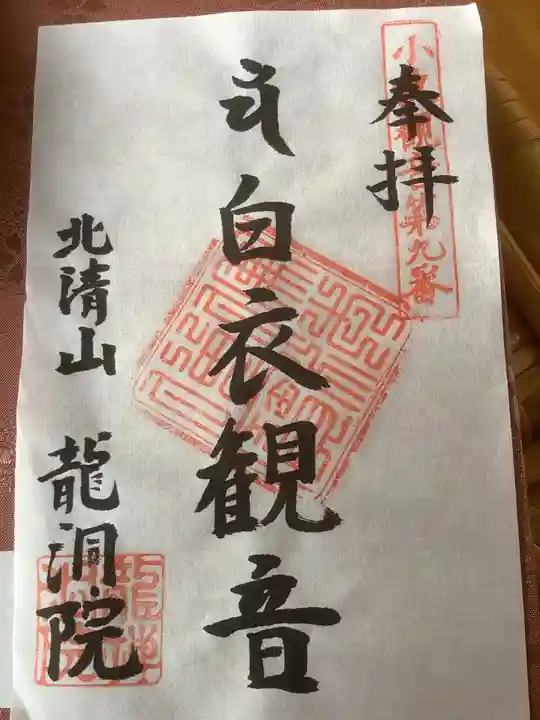 奉拝
小県観音第九番
白衣観音
北清山 龍洞院